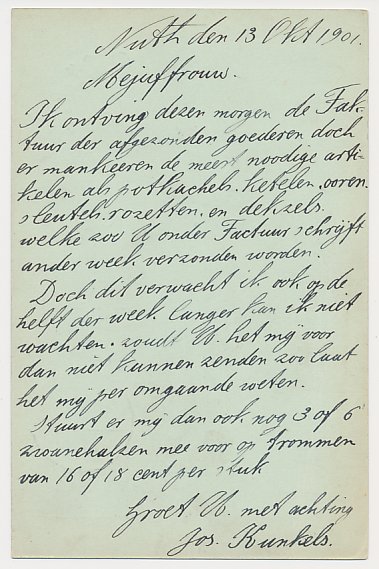 Nuth den 13 Okt 1901.
Mejuffrouw.
Ik ontving dezen morgen de Fak-
tuur der afgezonden goederen doch
er mankeeren de meest noodige arti-
kelen als potkachels. ketelen. ooren.
sleutels. rozetten. en deksels.
welke zoo U onder Factuur schrijft
ander week verzonden worden.
Doch dit verwacht ik ook op de
helft der week langer kan ik niet
wachten. zoudt U. het mij voor
dan niet kunnen zenden zoo laat
het mij per omgaande weten.
Stuurt er mij dan ook nog 3 of 6
zwanehalzen mee voor op trommen
van 16 of 18 cent per stuk
Groet U. met achting
Jos. Kunkels.